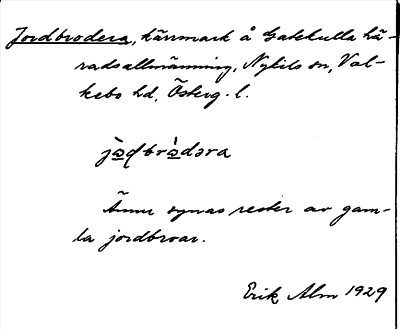 Jordbrodera, kärrmark å Gatekulla hä-
radsallmänning, Nykils sn, Val-
kebo hd, Österg. l.
Ännu synas rester av gam-
la jordbroar.
Erik Alm 1929